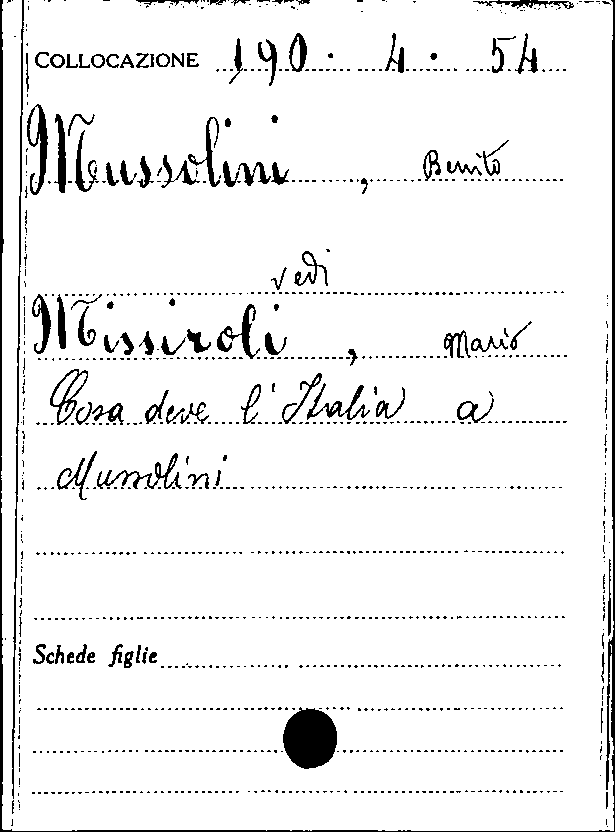 COLLOCAZIONE 190. 4. 54
Mussolini, Benito
vedi
Missiroli, Mario
Cosa deve l'Italia a
Mussolini
Schede figlie